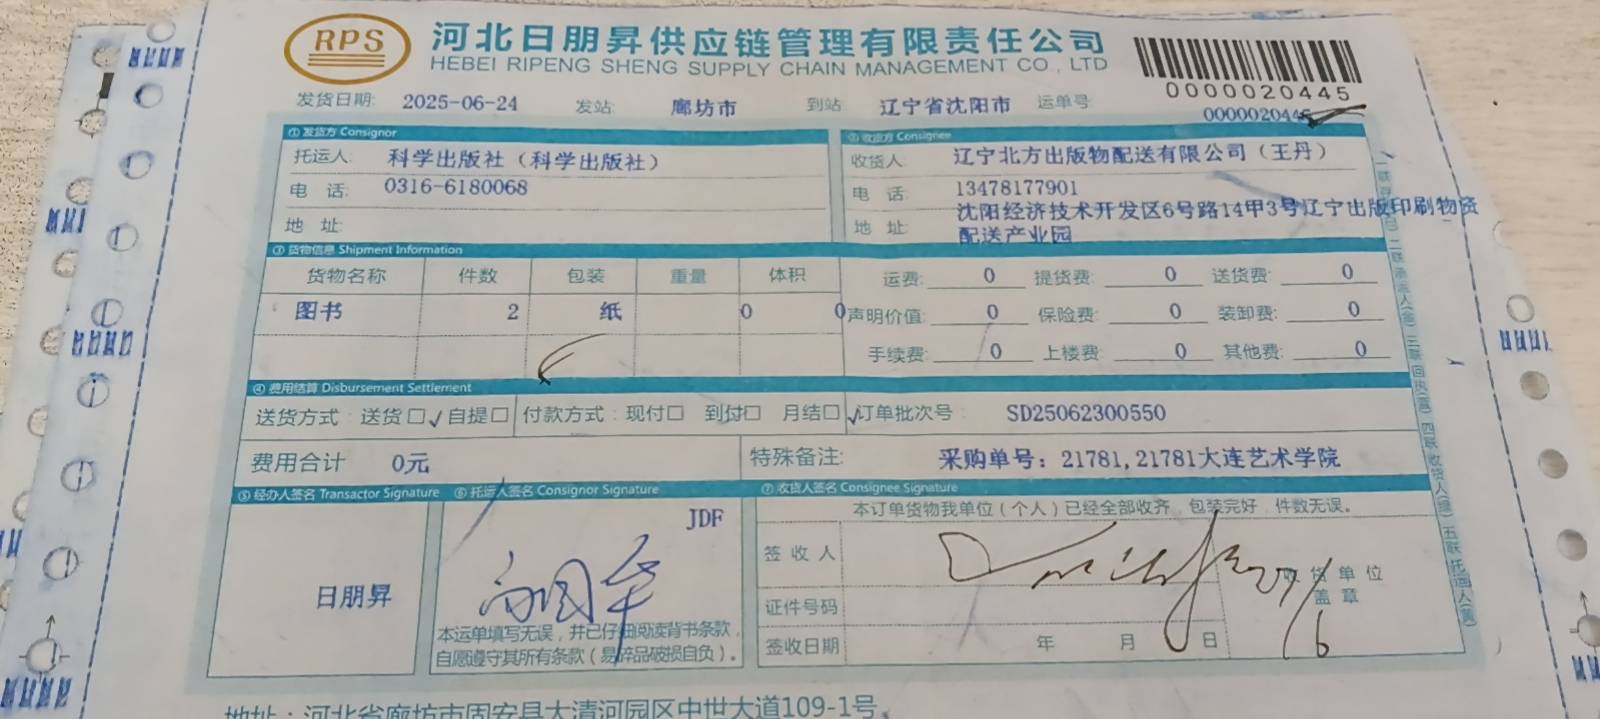 RPS
河北日朋昇供应链管理有限责任公司
HEBEI RIPENG SHENG SUPPLY CHAIN MANAGEMENT CO., LTD
0000020445
发货日期: 2025-06-24 发站: 廊坊市 到站: 辽宁省沈阳市 运单号: 0000020445
① 发货方 Consignor
② 收货方 Consignee
托运人: 科学出版社（科学出版社）
收货人: 辽宁北方出版物配送有限公司（王丹）
电 话: 0316-6180068
电 话: 13478177901
地 址:
地 址: 沈阳经济技术开发区6号路14甲3号辽宁出版印刷物资
配送产业园
③ 货物信息 Shipment Information
货物名称 件数 包装 重量 体积
运费: 0 提货费: 0 送货费: 0
图书 2 纸 0 0
声明价值: 0 保险费: 0 装卸费: 0
手续费: 0 上楼费: 0 其他费: 0
④ 费用结算 Disbursement Settlement
送货方式: 送货□ ✓自提□ 付款方式: 现付□ 到付□ 月结□ ✓订单批次号: SD25062300550
费用合计 0元 特殊备注: 采购单号: 21781,21781大连艺术学院
⑤ 经办人签名 Transactor Signature ⑥ 托运人签名 Consignor Signature ⑦ 收货人签名 Consignee Signature
本订单货物我单位（个人）已经全部收齐，包装完好，件数无误。
JDF
日朋昇
签 收 人
收 货 单 位
盖 章
证件号码
签收日期 年 月 日
本运单填写无误，并已仔细阅读背书条款，
自愿遵守其所有条款（易碎品破损自负）。
地址：河北省廊坊市固安县大清河园区中世大道109-1号